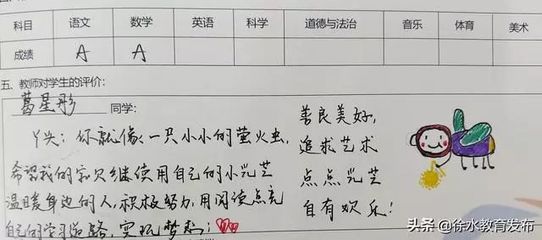 科目 语文 数学 英语 科学 道德与法治 音乐 体育 美术
成绩 A A
五、教师对学生的评价:
葛星彤 同学:
丫头:你就像一只小小的萤火虫,
希望我的宝贝继续用自己的小光芒
温暖身边的人,积极努力,用阅读点亮
自己的学习道路,实现梦想!
善良美好,
追求艺术
点点光芒
自有欢乐!
头条 @徐水教育发布